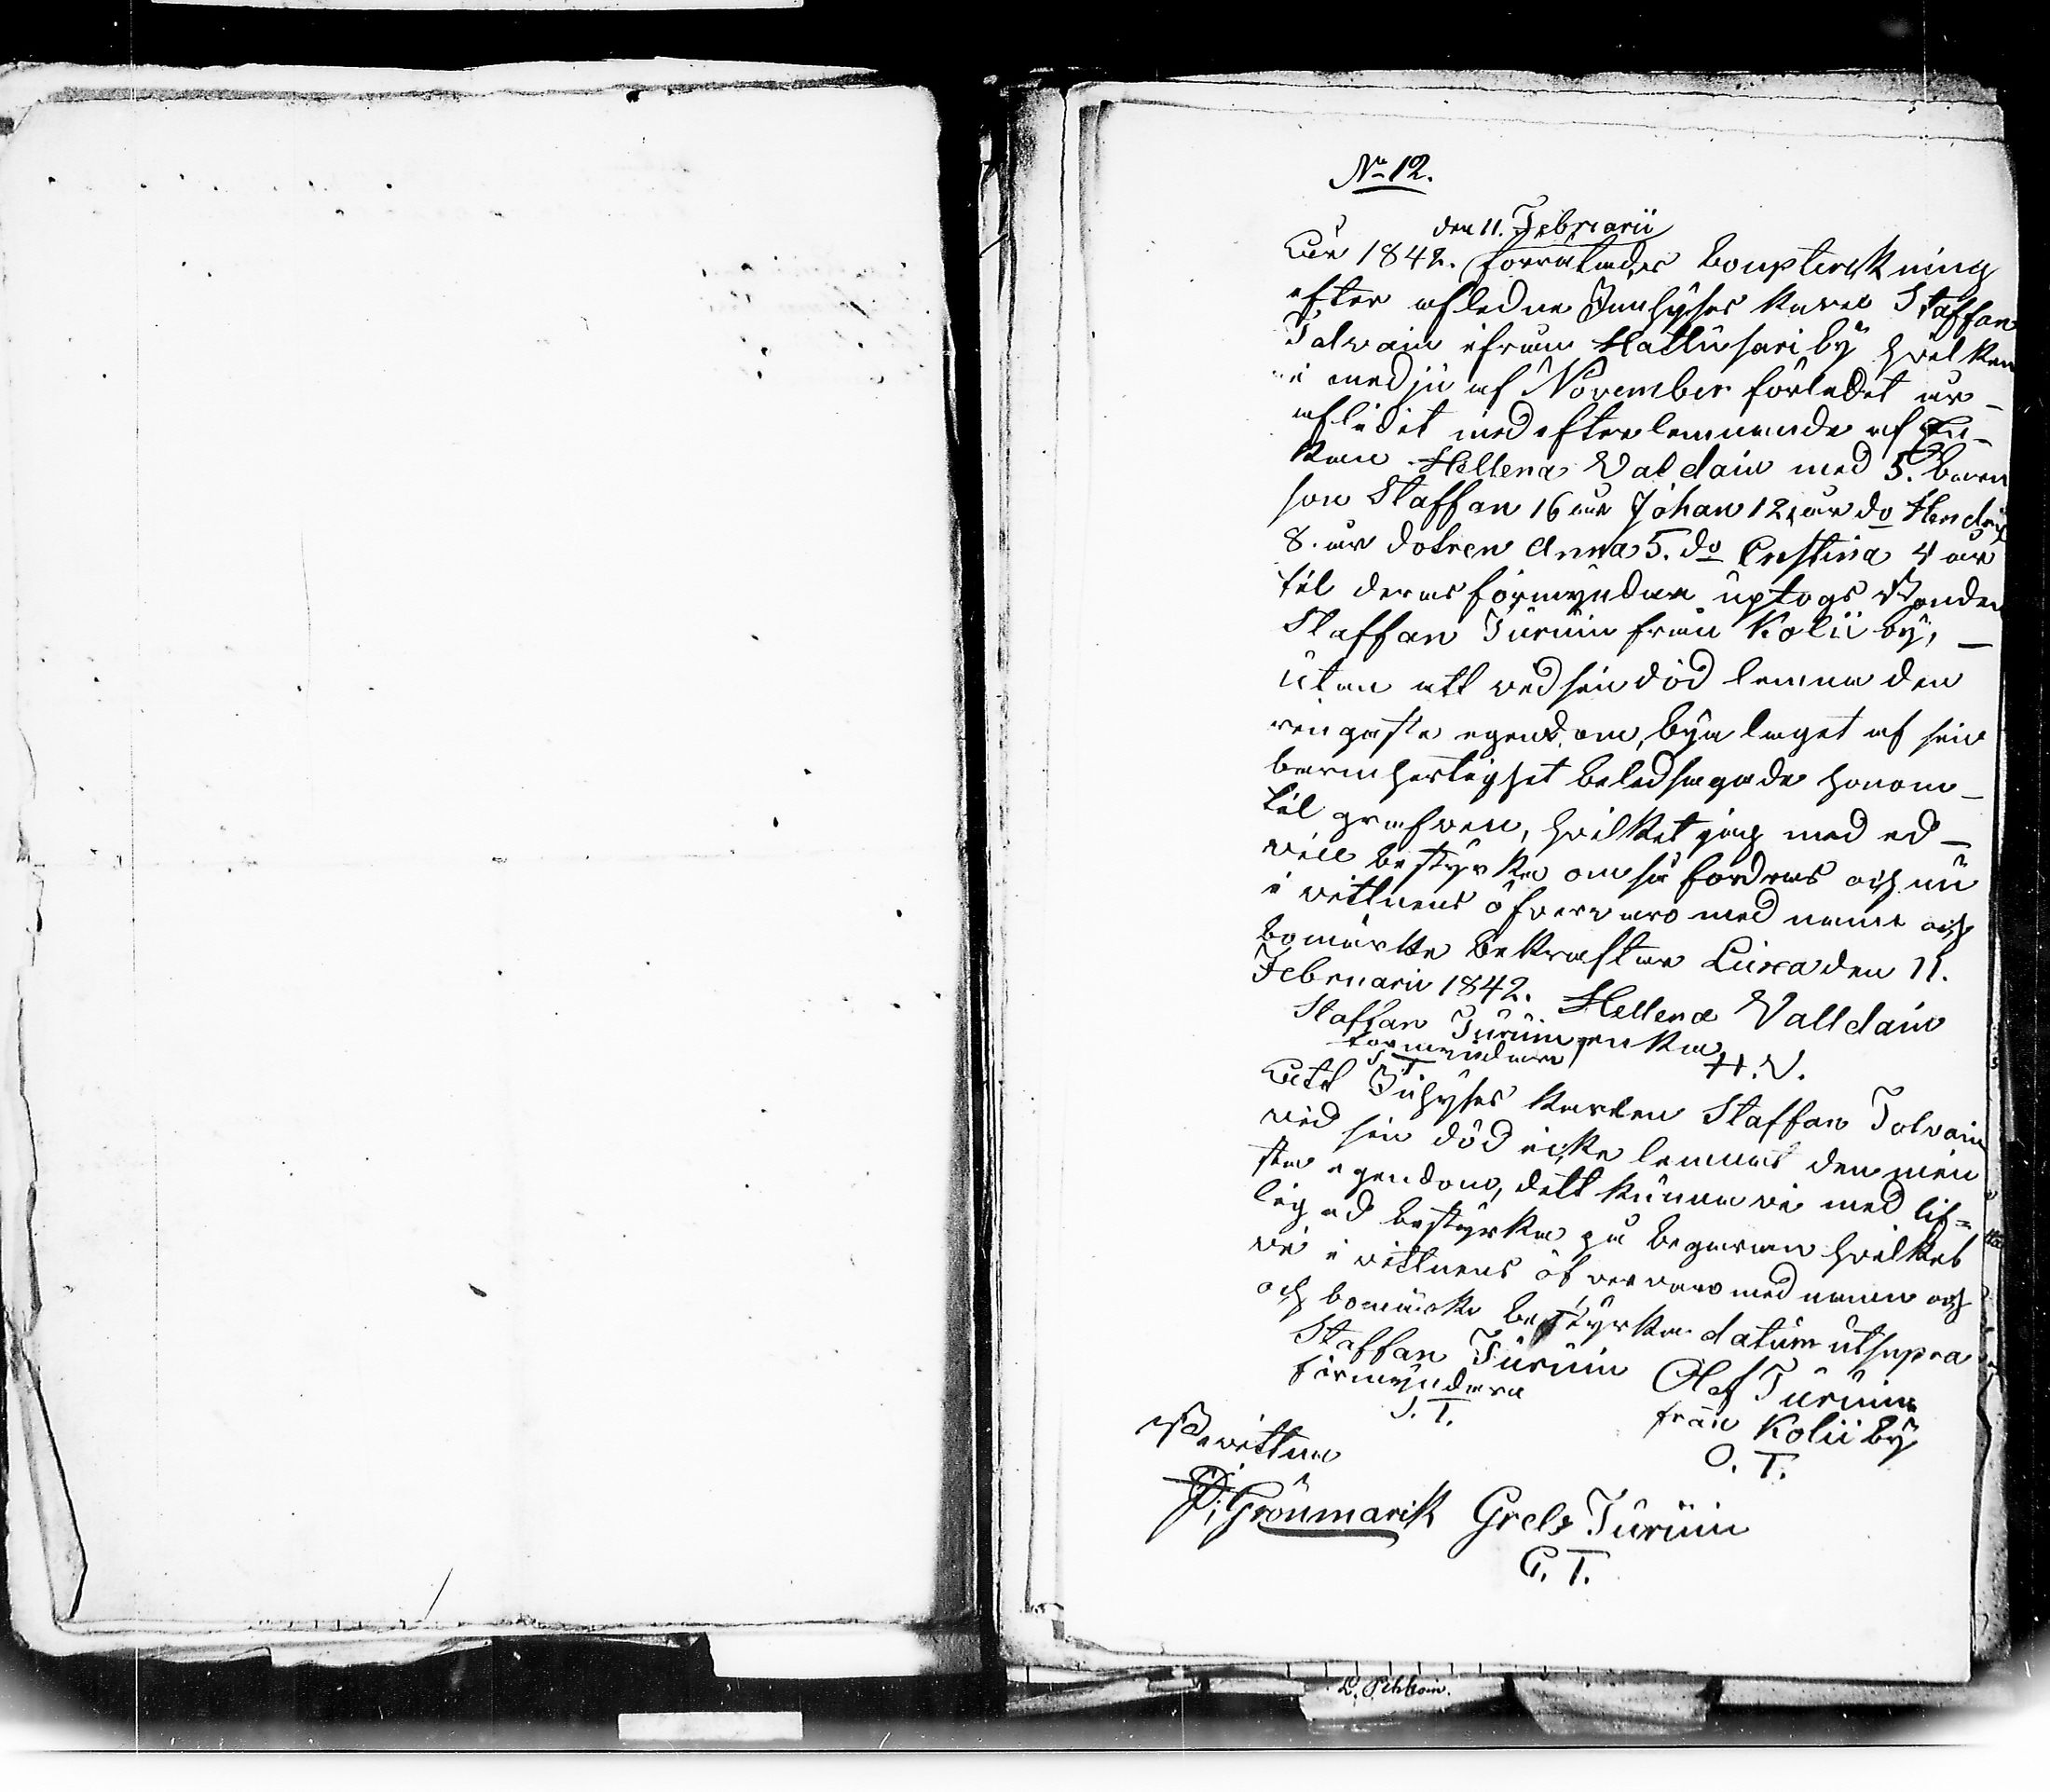 No 12.
den 11. Februarii
Åhr 1842. förrätades bouptekning
efter afledne Innhyses karel Staffan
Tolvain ifrån Hattusari by hvilken
i medju af November förledet år
aflidit med efterlemnande af En-
kan Hellena Valdain med 5. barn
son Staffan 16 år Johan 12, år do Hendrik
8. år dotren Anna 5. do Cristina 4 år
til deras förmyndare uptogs Bonden
Staffan Turuin från Kolii by,
utan att wed sin död lemna den
ringaste egendom, bya laget af sin
barmhertighet beledsagade honom
til grafwen, hvilket jag med ed
will bestyrka om så fordras och nu
i wittnens öfverwaro med namn och
bomärke bekräftar Lixa den 11.
Februarii 1842. Hellena Valldain
Staffan Turuin enka
formyndare H. V.
S T
Att Inhyses karlen Staffan Tolvain
wid sin död icke lemnat den min
sta egendom, dett kunna wi med lif=
lig ed bestyrka på begäran hvilket
wi i wittnens öfverwaro med namn och
och bomärke bestyrka datum utsupra
Staffan Turuin Olof Turuin
förmyndare från Kolii by
S. T. O. T.
Bewittna
P; Grönmarck Grels Turuin
G. T.